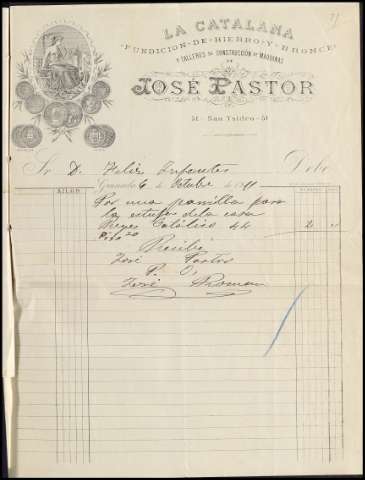 LA CATALANA
FUNDICION-DE-HIERRO-Y-BRONCE
Y TALLERES DE CONSTRUCCION DE MAQUINAS
DE
JOSÉ PASTOR
51-San Ysidro-51
Sr. D. Felix Infantes Debe
Granada 6 de Octubre de 1911
KILOS
Por una parrilla para
la estufa de la casa
Reyes Católicos 44 2
Recibí
José Pastor
P. O.
José Roman